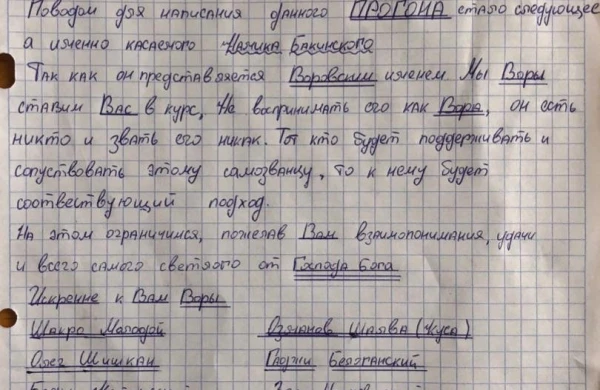 Поводом для написания данного ПРОГОНА стало следующее
а именно касаемого Намика Бакинского
Так как он представляется Воровским именем Мы Воры
ставим Вас в курс, Не воспринимать его как Вора, он есть
никто и звать его никак. Тот кто будет поддерживать и
сопуствовать этому самозванцу, то к нему будет
соотвествующий подход.
На этом ограничимся, пожелав Вам взаимопонимания, удачи
и всего самого светлого от Господа Бога
Искренне к Вам Воры
Шакро Молодой Озманов Шалва (Куса)
Олег Шишкан Годжи Бергганский